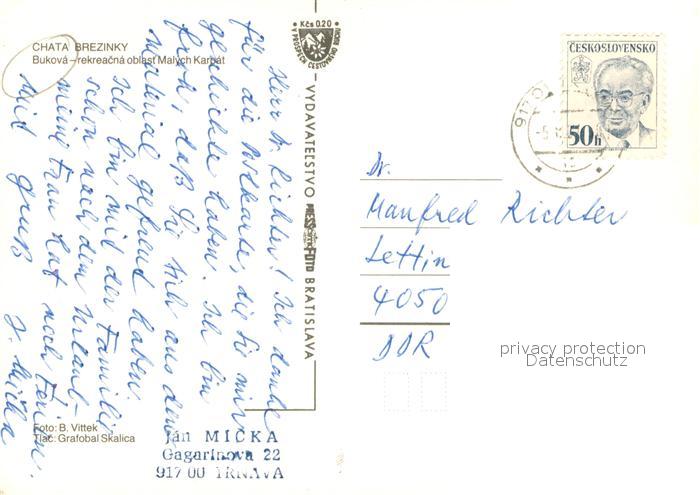 CHATA BREZINKY
Buková – rekreačná oblasť Malých Karpát
Herr Dr. Richter! Ich danke
für die Postkarte, die Sie mir
geschickt haben. Ich bin
froh, daß Sie sich aus dem
Material gefreut haben.
Ich bin mit der Familie
schon nach dem Urlaub –
meine Frau hat noch Ferien.
Mit Gruß J. Mička
Foto: B. Vittek
Tlač: Grafobal Skalica
Ján MIČKA
Gagarinova 22
917 00 TRNAVA
Kčs 0.20
V PROSPECH CESTOVNÉHO RUCHU
VYDAVATEĽSTVO PRESSFOTO BRATISLAVA
ČESKOSLOVENSKO
50h
917 0
Dr.
Manfred Richter
Lettin
4050
DDR
privacy protection
Datenschutz